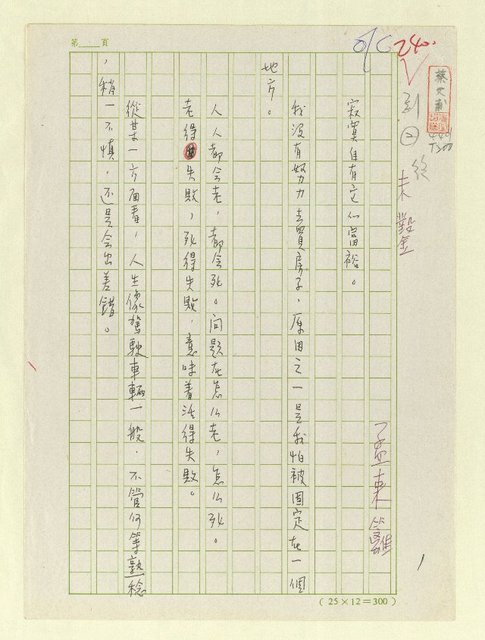 第 頁
24.
蔡文甫
刊② 終
未鑿
孟東籬
1
寂寞自有它的富裕。
我沒有努力去買房子,原因之一是我怕被固定在一個
地方。
人人都会老,都会死。问题在怎么老,怎么死。
老得失敗,死得失敗,意味着活得失敗。
從某一方面看,人生像駕駛車輛一般,不管何等熟稔
,稍一不慎,还是会出差錯。
( 25×12=300 )